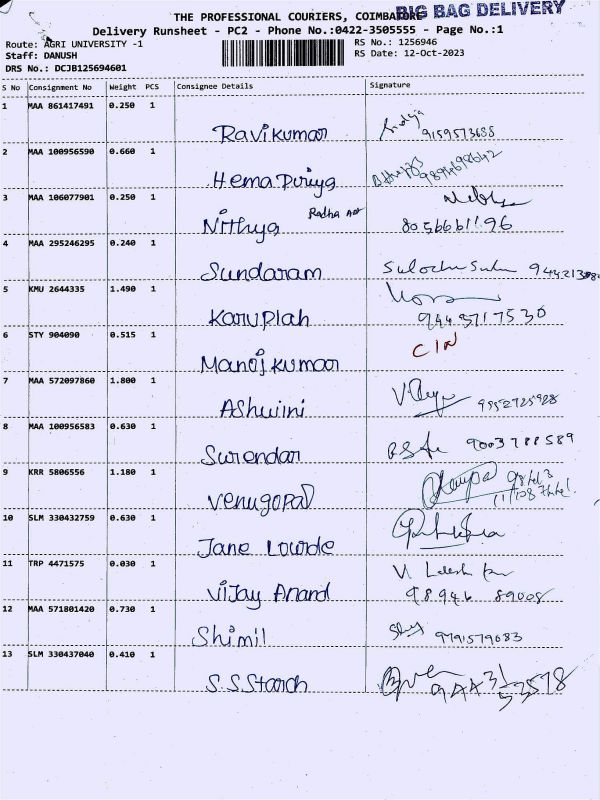 THE PROFESSIONAL COURIERS, COIMBATORE
BIG BAG DELIVERY
Delivery Runsheet - PC2 - Phone No.:0422-3505555 - Page No.:1
Route: AGRI UNIVERSITY -1 RS No.: 1256946
Staff: DANUSH RS Date: 12-Oct-2023
DRS No.: DCJB125694601
S No Consignment No Weight PCS Consignee Details Signature
1 MAA 861417491 0.250 1
Ravikumar 9159573688
2 MAA 100956590 0.660 1
Hema Piriya
3 MAA 106077901 0.250 1
Nithya 8056661196
4 MAA 295246295 0.240 1
Sundaram
5 KMU 2644335 1.490 1
Karuplah 9443717530
6 STY 904090 0.515 1 CIN
Manoj kumar
7 MAA 572097860 1.800 1
Ashwini 9952725928
8 MAA 100956583 0.630 1
Surendar 9003788589
9 KRR 5806556 1.180 1
Venugopal
10 SLM 330432759 0.630 1
Jane Lourde
11 TRP 4471575 0.030 1
Vijay Anand 98946 89008
12 MAA 571801420 0.730 1
Shimil 9791579683
13 SLM 330437040 0.410 1
S.S.Starch